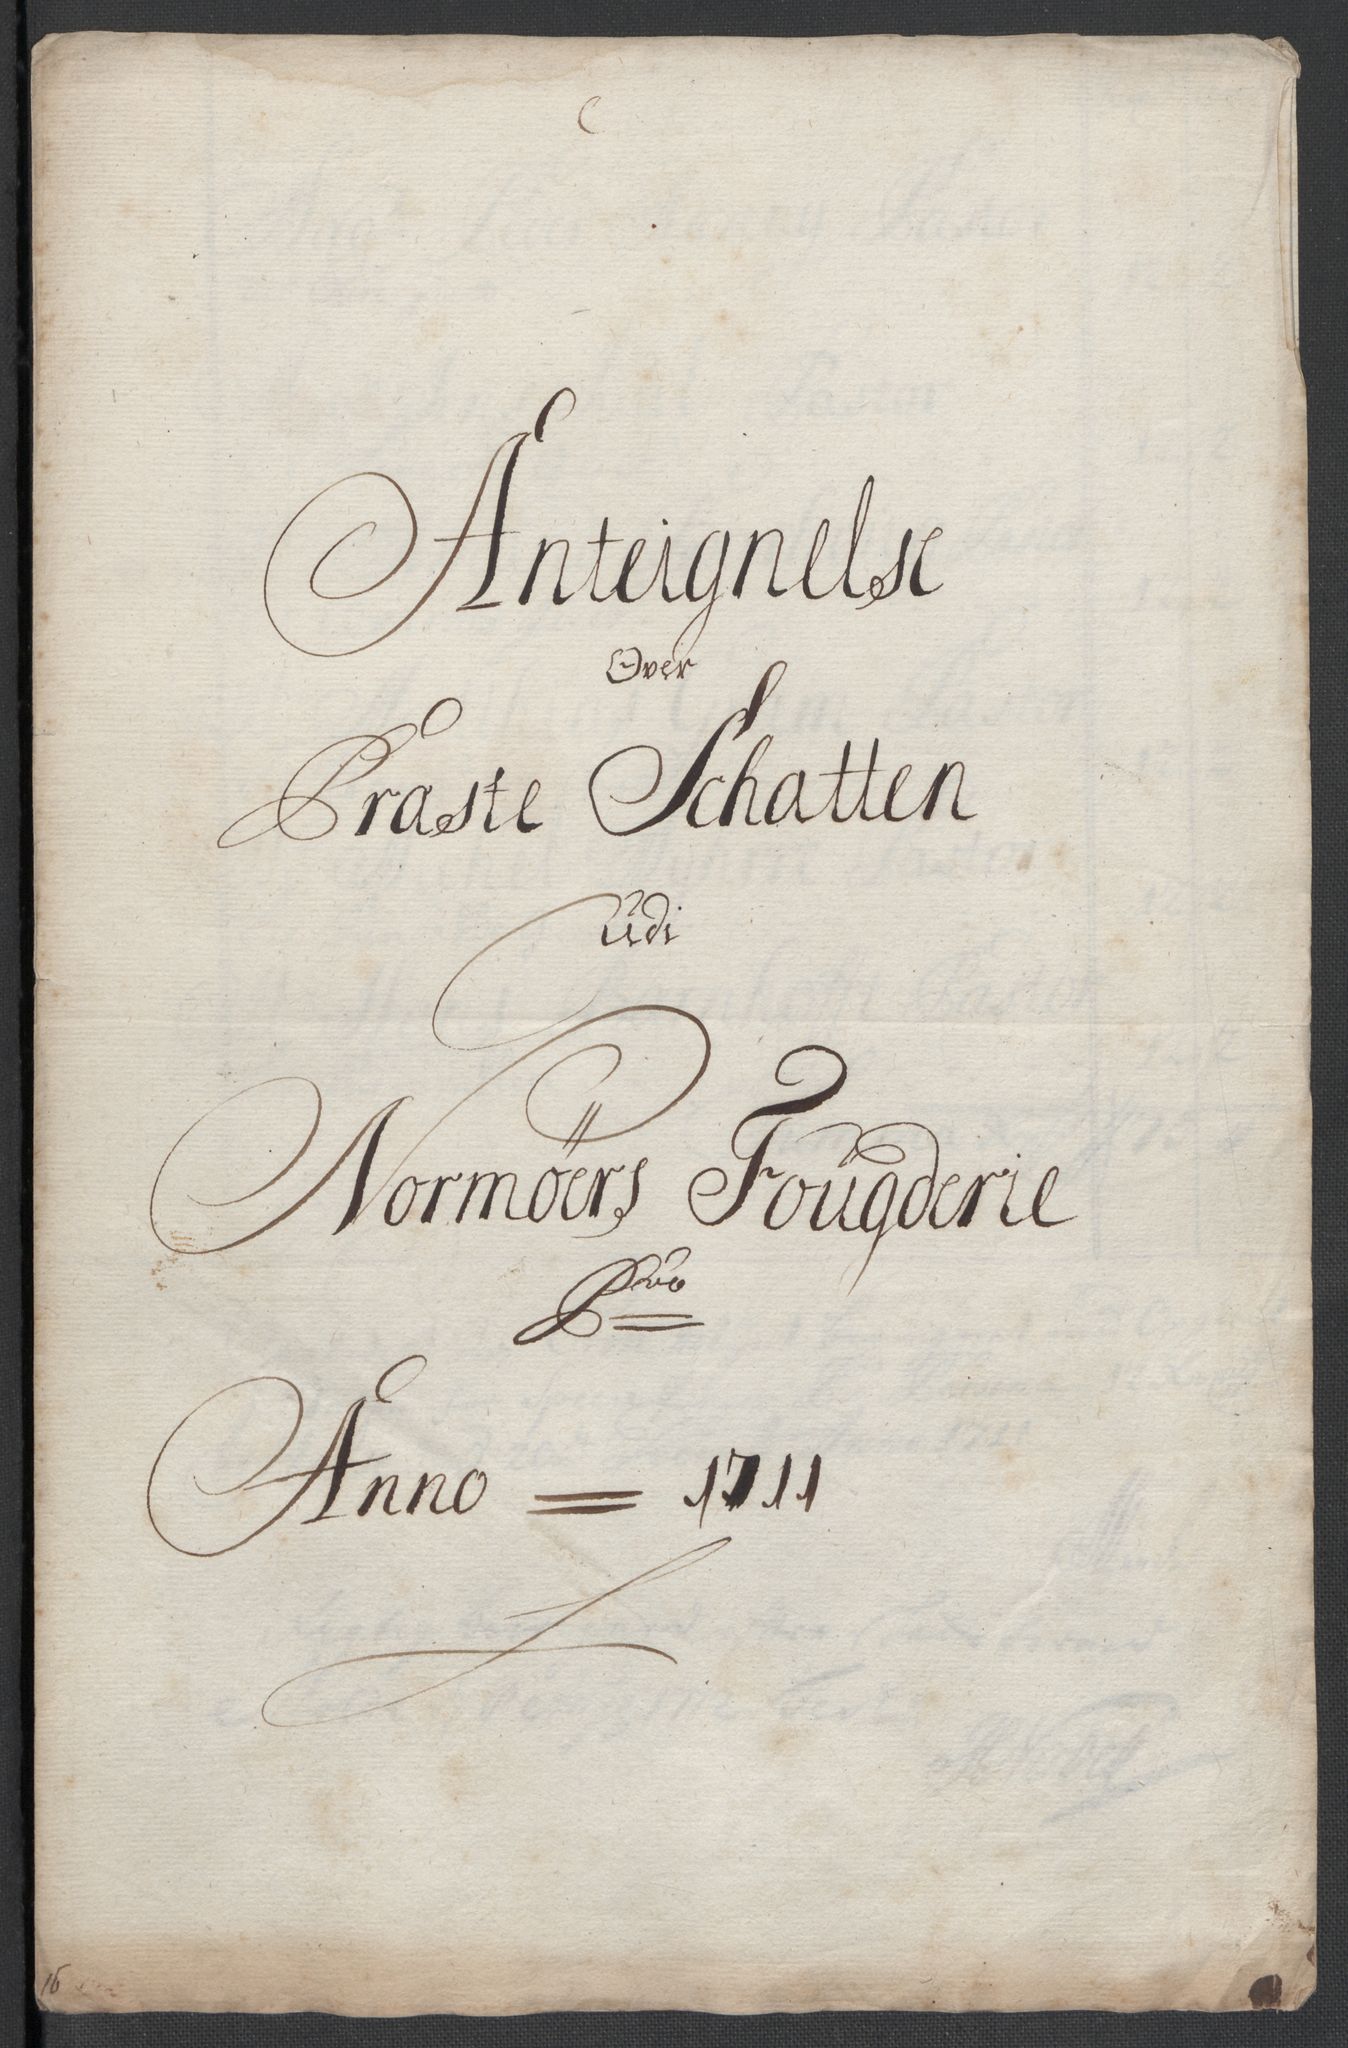 Anteignelse
Over
Præste Schatten
Udi
Normöers Fougderie
Pro
Anno = 1711
16